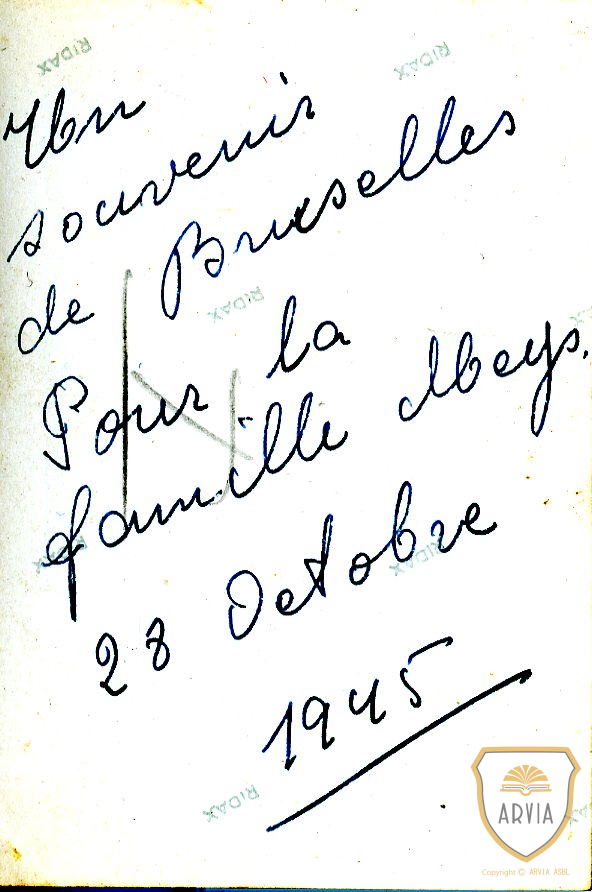 RIDAX
RIDAX
Un
souvenir
de Bruxselles
RIDAX
Pour la
famille Meys.
RIDAX
RIDAX
28 Octobre
1945
RIDAX
ARVIA
Copyright © ARVIA ASBL